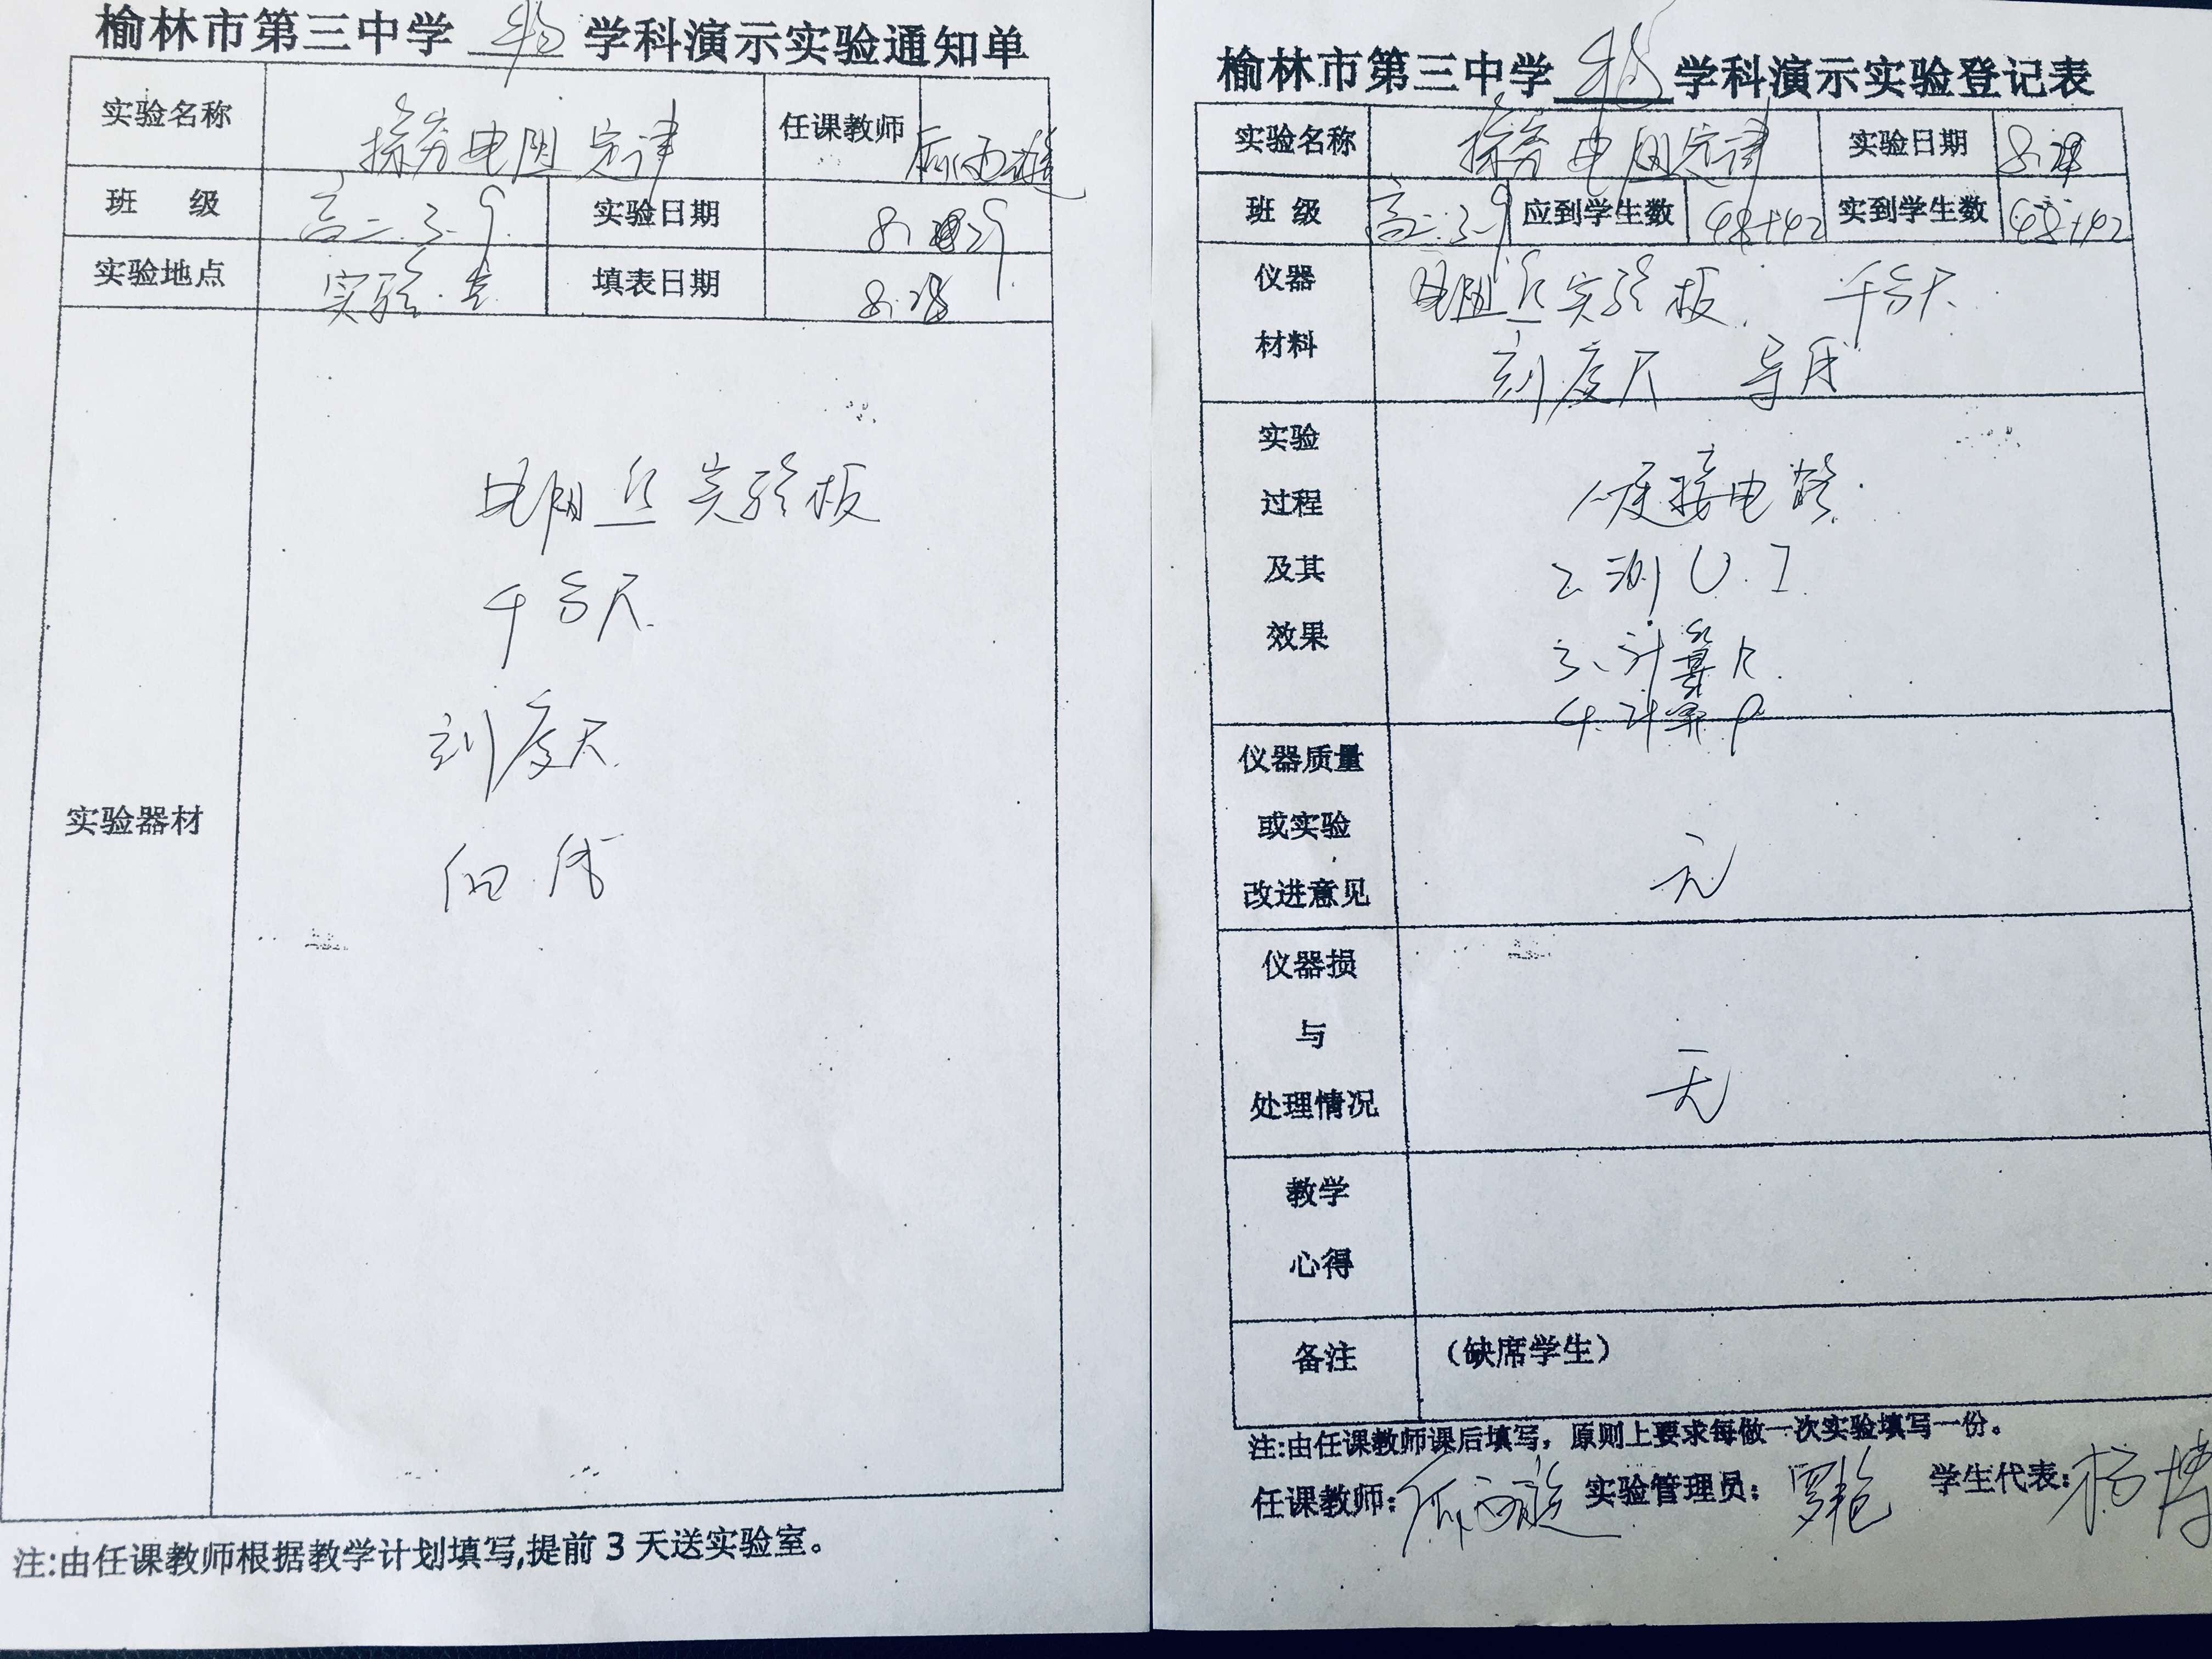 榆林市第三中学 物 学科演示实验通知单
实验名称 探究电阻定律 任课教师
班 级 高二.3.9. 实验日期 8.29
实验地点 实验室 填表日期 8.28
实验器材
电阻丝实验板
千分尺
刻度尺
注:由任课教师根据教学计划填写,提前3天送实验室。
榆林市第三中学 物 学科演示实验登记表
实验名称 探究电阻定律 实验日期 8.29
班 级 高二.3.9 应到学生数 48+42 实到学生数 48+42
仪器材料
电阻丝实验板 千分尺
刻度尺 导线
实验过程及其效果
1.连接电路.
2.测U.I
3、计算R
4.计算ρ
仪器质量或实验改进意见
无
仪器损与处理情况
无
教学心得
备注 (缺席学生)
注:由任课教师课后填写，原则上要求每做一次实验填写一份。
任课教师: 实验管理员: 学生代表: